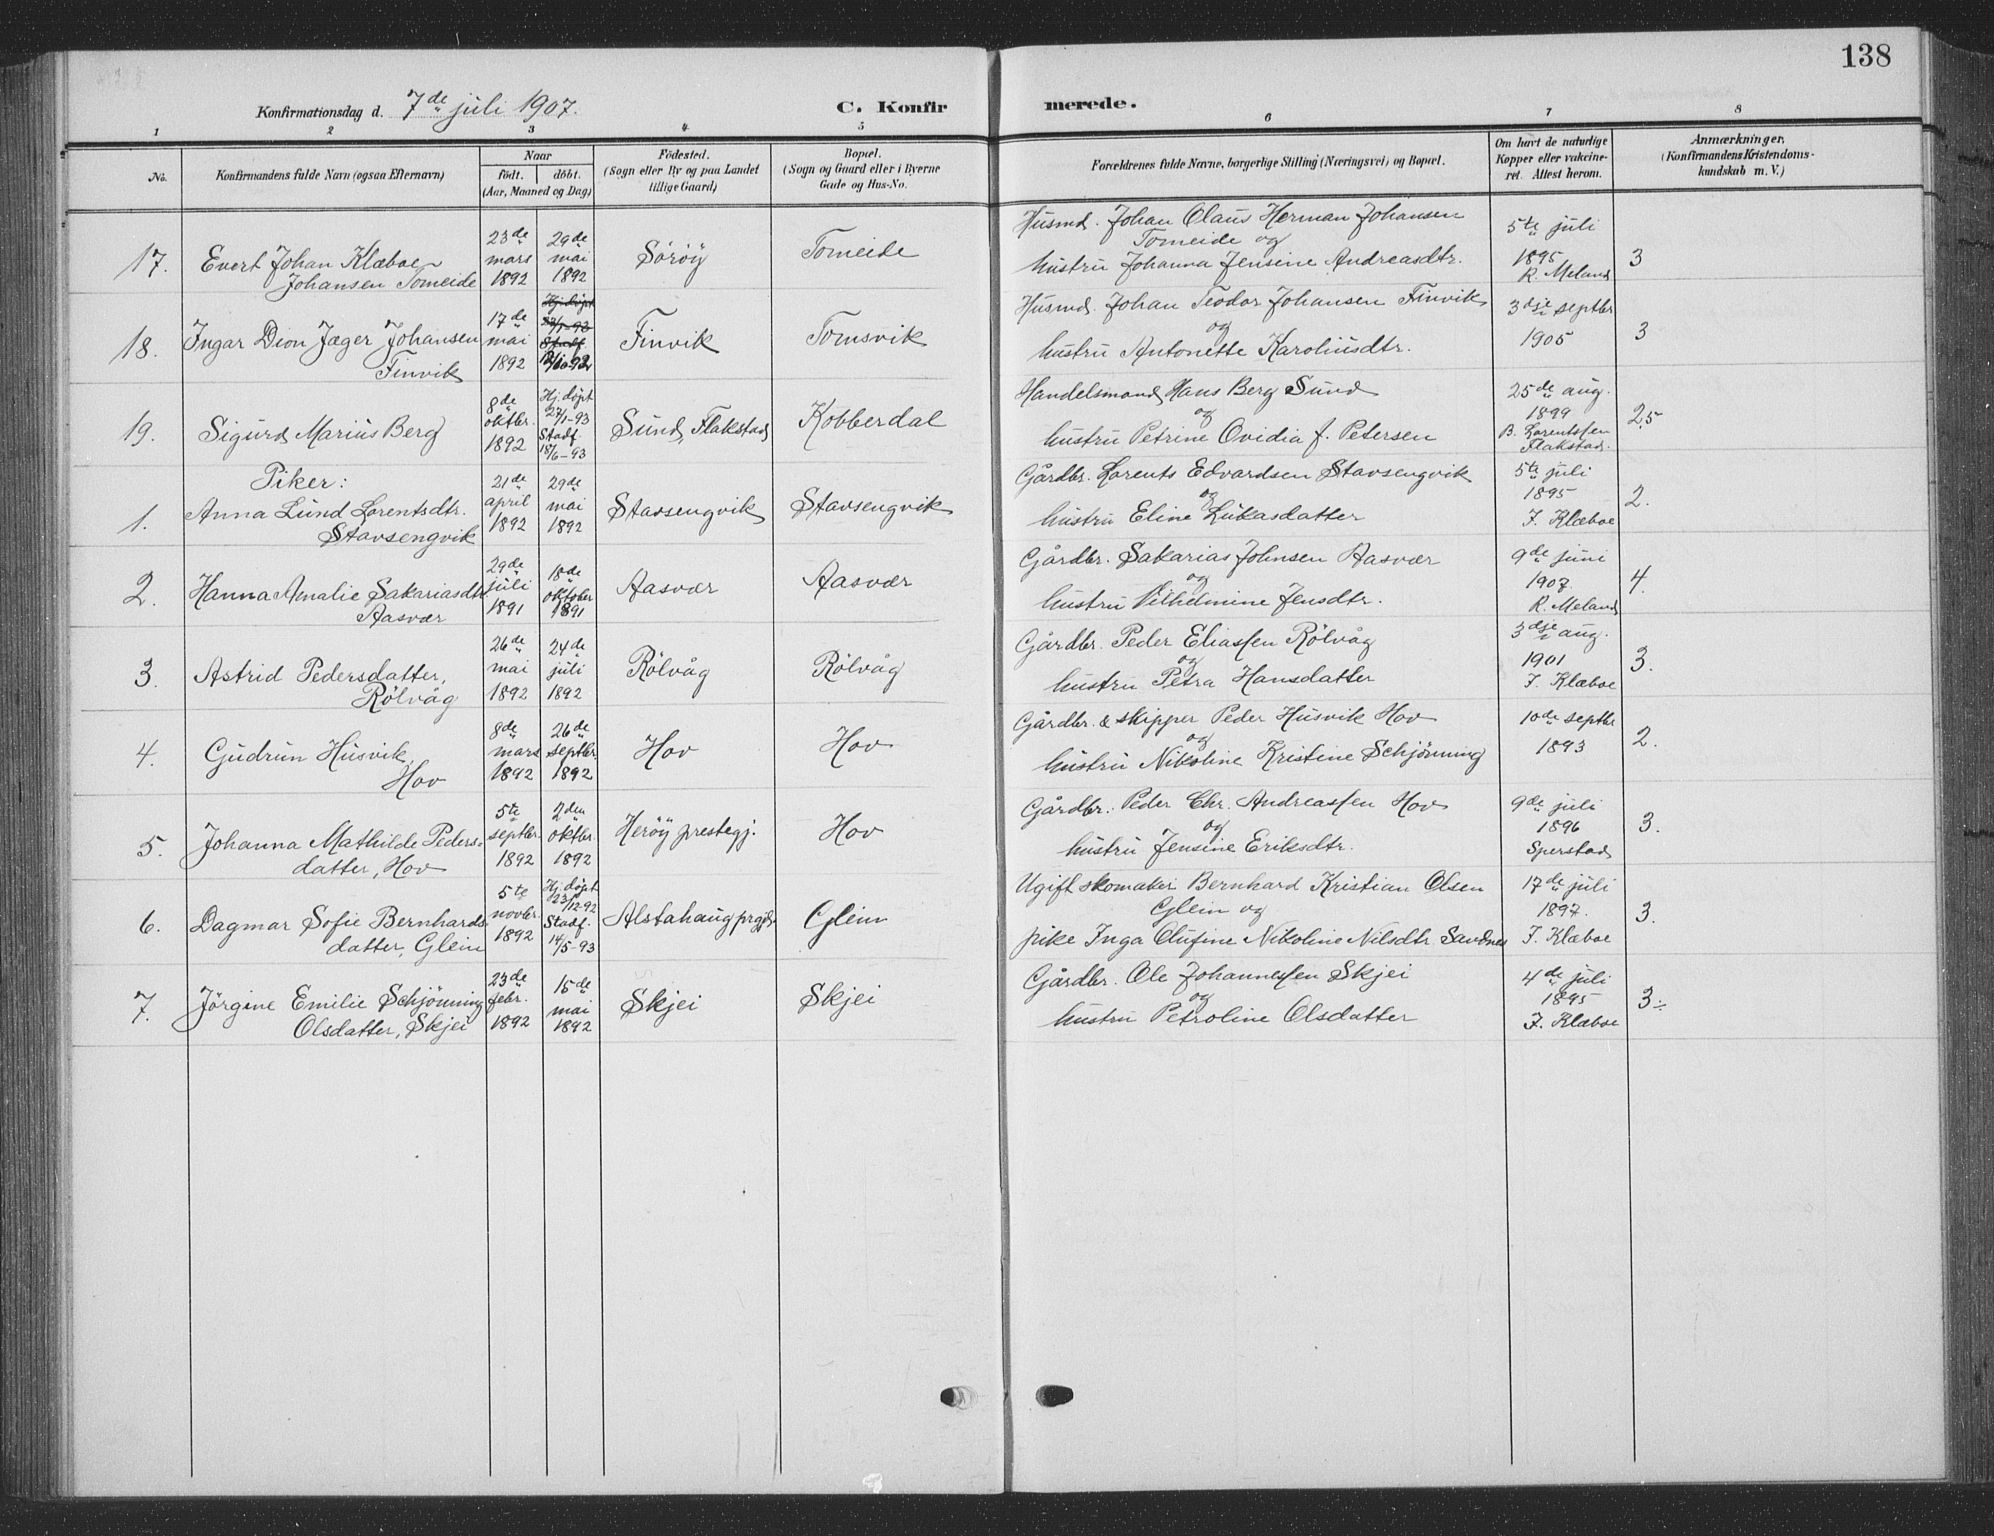 138
Konfirmationsdag d. 7de juli 1907.
C. Konfirmerede.
1 2 3 4 5 6 7 8
No.
Konfirmandens fulde Navn (ogsaa Efternavn)
Naar
födt. döbt.
(Aar, Maaned og Dag)
Födested.
(Sogn eller By og paa Landet
tillige Gaard)
Bopæl.
(Sogn og Gaard eller i Byerne
Gade og Hus-No.
Forældrenes fulde Navne, borgerlige Stilling (Næringsvei) og Bopæl.
Om havt de naturlige
Kopper eller vakcine-
ret. Attest herom.
Anmærkninger,
(Konfirmandens Kristendoms-
kundskab m. V.)
17. Evert Johan Klæboe
Johansen Tomeide
23de mars 1892
29de mai 1892
Söröy
Tomeide
Husmd. Johan Olaus Herman Johansen
Tomeide og
hustru Johanna Jensine Andreasdtr.
5te juli
1895
R. Meland
3
18. Ingar Dion Jæger Johansen
Finvik
17de mai 1892
Hj. døpt
Stadf.
Finvik
Tomsvik
Husmd. Johan Teodor Johansen Finvik
og
hustru Antonette Karoliusdtr.
3dje septbr
1905
3
19. Sigurd Marius Berg
8de oktbr. 1892
Hj. døpt
27/1-93
Stadf.
18/6-93
Sund, Flakstad
Kobberdal
Handelsmand Hans Berg Sund
og
hustru Petrine Ovidia f. Petersen
25de aug.
1899
B. Lorentsen
Flakstad.
2,5
Piker:
1. Anna Lund Lorentsdtr.
Stavsengvik
21de april 1892
29de mai 1892
Stavsengvik
Stavsengvik
Gårdbr. Lorents Edvardsen Stavsengvik
og
hustru Eline Lukasdatter
5te juli
1895
J. Klæboe
2.
2. Hanna Amalie Sakariasdtr
Aasvær
29de juli 1891
18de oktober 1891
Aasvær
Aasvær
Gårdbr. Sakarias Johnsen Aasvær
og
hustru Vilhelmine Jensdtr.
9de juni
1907.
R. Meland
4.
3. Astrid Pedersdatter,
Rölvåg
26de mai 1892
24de juli 1892
Rölvåg
Rölvåg
Gårdbr. Peder Eliassen Rölvåg
og
hustru Petra Hansdatter
3dje aug.
1901
J. Klæboe
3.
4. Gudrun Husvik,
Hov
8de mars 1892
26de septbr. 1892
Hov
Hov
Gårdbr. & skipper Peder Husvik Hov
og
hustru Nikoline Kristine Schjönning
10de septbr
1893
2.
5. Johanna Mathilde Peders-
datter, Hov
5te septbr. 1892
2den oktbr. 1892
Heröy prestegj.
Hov
Gårdbr. Peder Chr. Andreassen Hov
og
hustru Jensine Eriksdtr.
9de juli
1896
Sperstad
3.
6. Dagmar Sofie Bernhards-
datter, Glein
5te novbr. 1892
Hj. døpt
23/12-92
Stadf.
14/5-93
Alstahaug prgjd.
Glein
Ugift skomaker Bernhard Kristian Olsen
Glein og
pike Inga Olufine Nikoline Nilsdtr. Sandnes
17de juli
1897.
J. Klæboe
3.
7. Jörgine Emilie Schjönning
Olsdatter, Skjei
23de febr. 1892
15de mai 1892
Skjei
Skjei
Gårdbr. Ole Johannessen Skjei
og
hustru Petroline Olsdatter
4de juli
1895
J. Klæboe
3÷